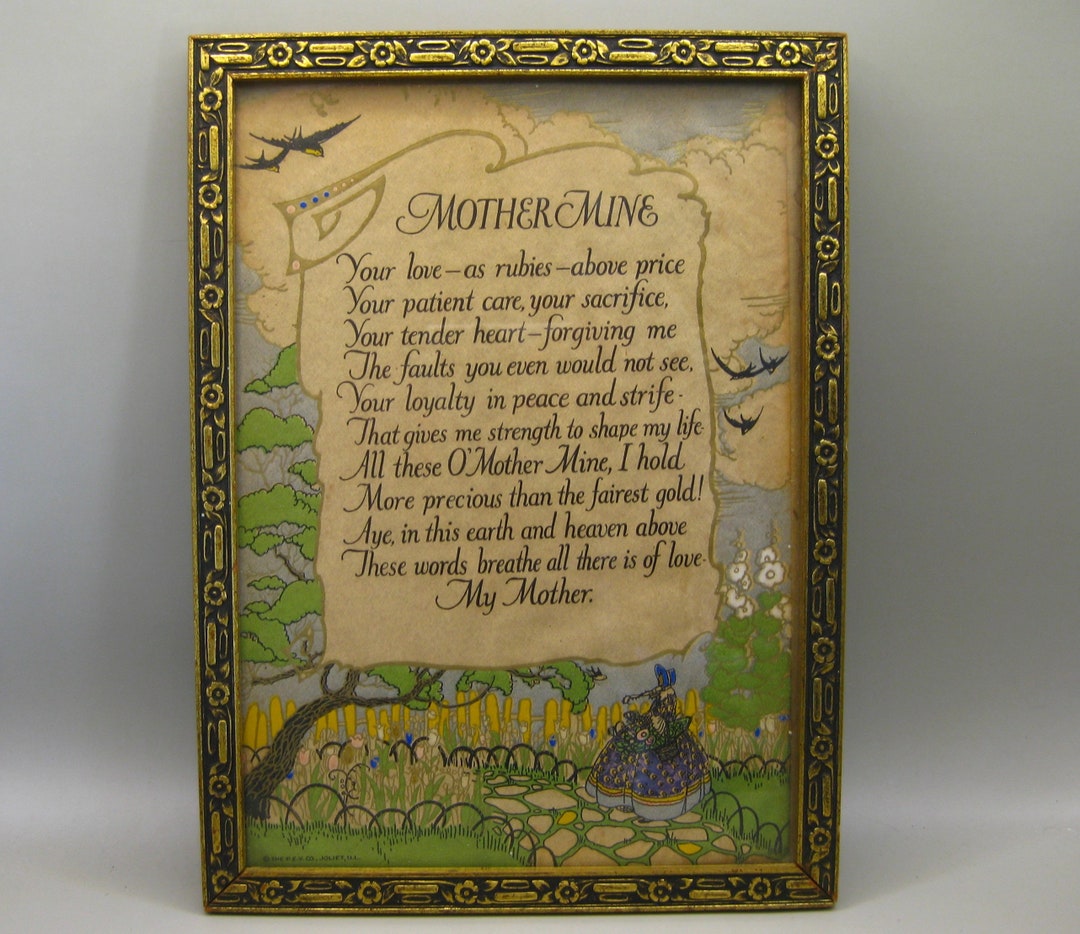 MOTHER MINE
Your love—as rubies—above price
Your patient care, your sacrifice,
Your tender heart—forgiving me
The faults you even would not see,
Your loyalty in peace and strife-
That gives me strength to shape my life-
All these O'Mother Mine, I hold
More precious than the fairest gold!
Aye, in this earth and heaven above
These words breathe all there is of love-
My Mother.
© THE P.F.V. CO., JOLIET, ILL.